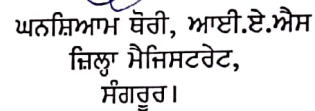 ਘਨਸ਼ਿਆਮ ਥੋਰੀ, ਆਈ.ਏ.ਐਸ
ਜ਼ਿਲ੍ਹਾ ਮੈਜਿਸਟਰੇਟ,
ਸੰਗਰੂਰ।